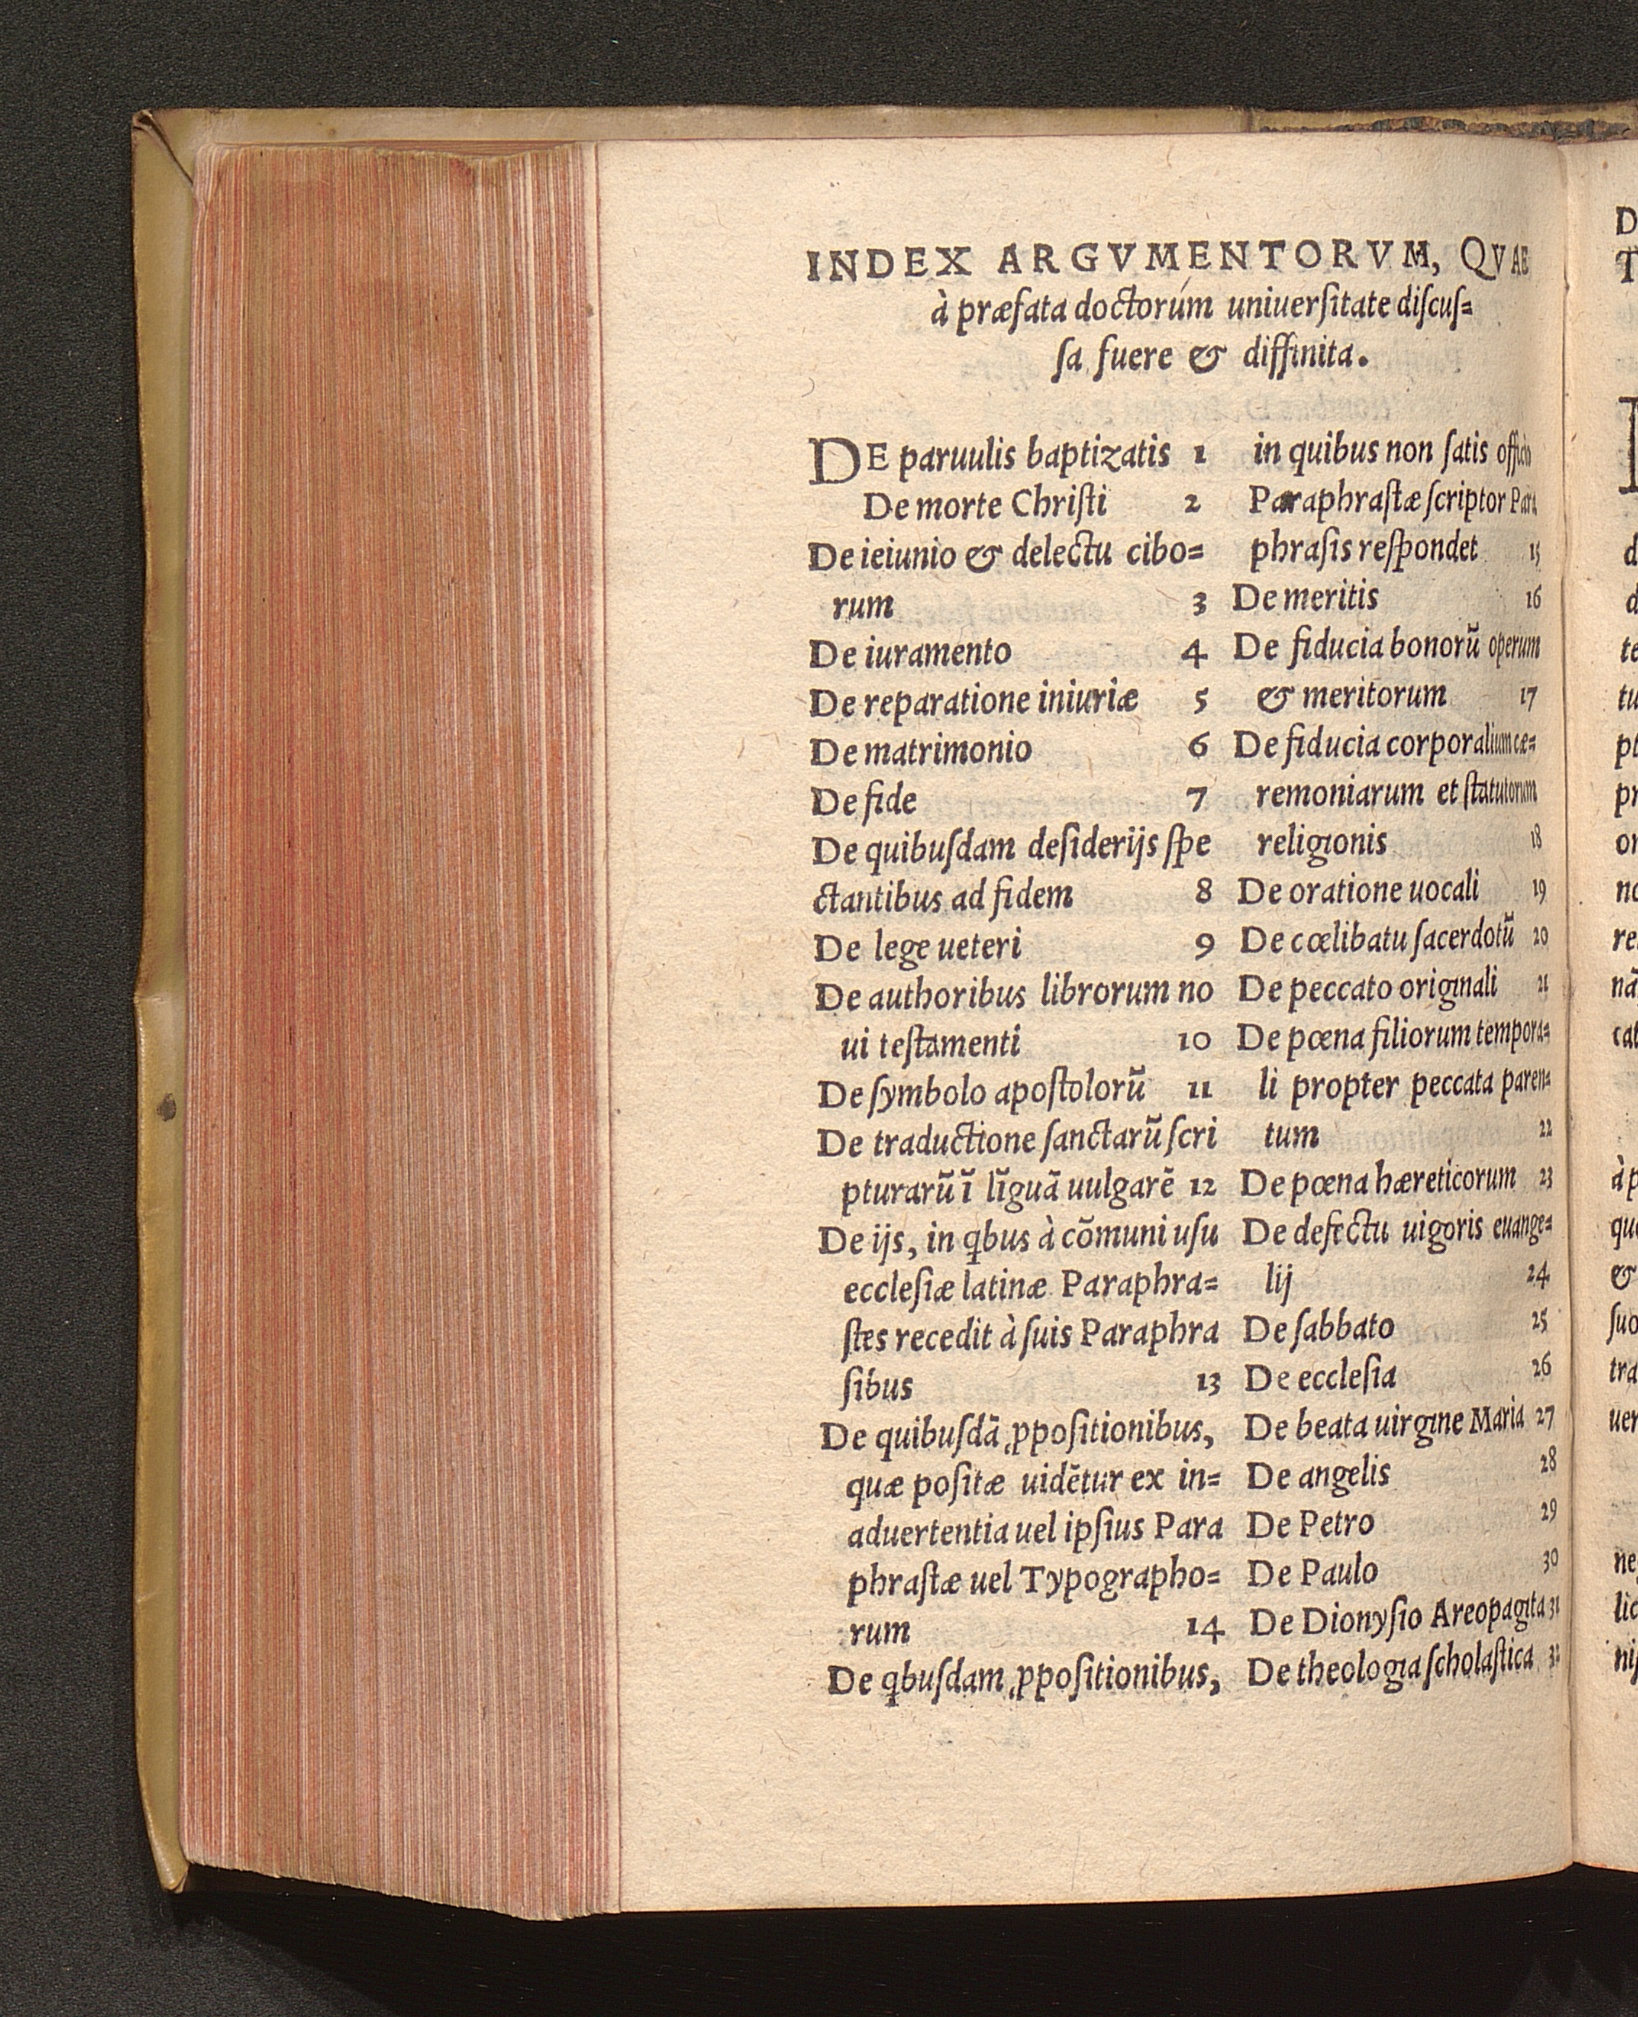 INDEX ARGVMENTORVM, QVAE
à præfata doctorum uniuerſitate diſcuſ=
ſa fuere & diffinita.
DE paruulis baptizatis 1
De morte Chriſti 2
De ieiunio & delectu cibo=
rum 3
De iuramento 4
De reparatione iniuriæ 5
De matrimonio 6
De fide 7
De quibuſdam deſiderijs ſpe
ctantibus ad fidem 8
De lege ueteri 9
De authoribus librorum no
ui teſtamenti 10
De ſymbolo apoſtolorũ 11
De traductione ſanctarũ ſcri
pturarũ ĩ lĩguã uulgarẽ 12
De ijs, in qbus à cõmuni uſu
eccleſiæ latinæ Paraphra=
ſtes recedit à ſuis Paraphra
ſibus 13
De quibuſdã ꝓpoſitionibus,
quæ poſitæ uidẽtur ex in=
aduertentia uel ipſius Para
phraſtæ uel Typographo=
rum 14
De qbuſdam ꝓpoſitionibus,
in quibus non ſatis officio
Paraphraſtæ ſcriptor Para
phraſis reſpondet 15
De meritis 16
De fiducia bonorũ operum
& meritorum 17
De fiducia corporalium cæ=
remoniarum et ſtatutorum
religionis 18
De oratione uocali 19
De cœlibatu ſacerdotũ 20
De peccato originali 21
De pœna filiorum tempora=
li propter peccata paren=
tum 22
De pœna hæreticorum 23
De defectu uigoris euange=
lij 24
De ſabbato 25
De eccleſia 26
De beata uirgine Maria 27
De angelis 28
De Petro 29
De Paulo 30
De Dionyſio Areopagita 31
De theologia ſcholaſtica 32